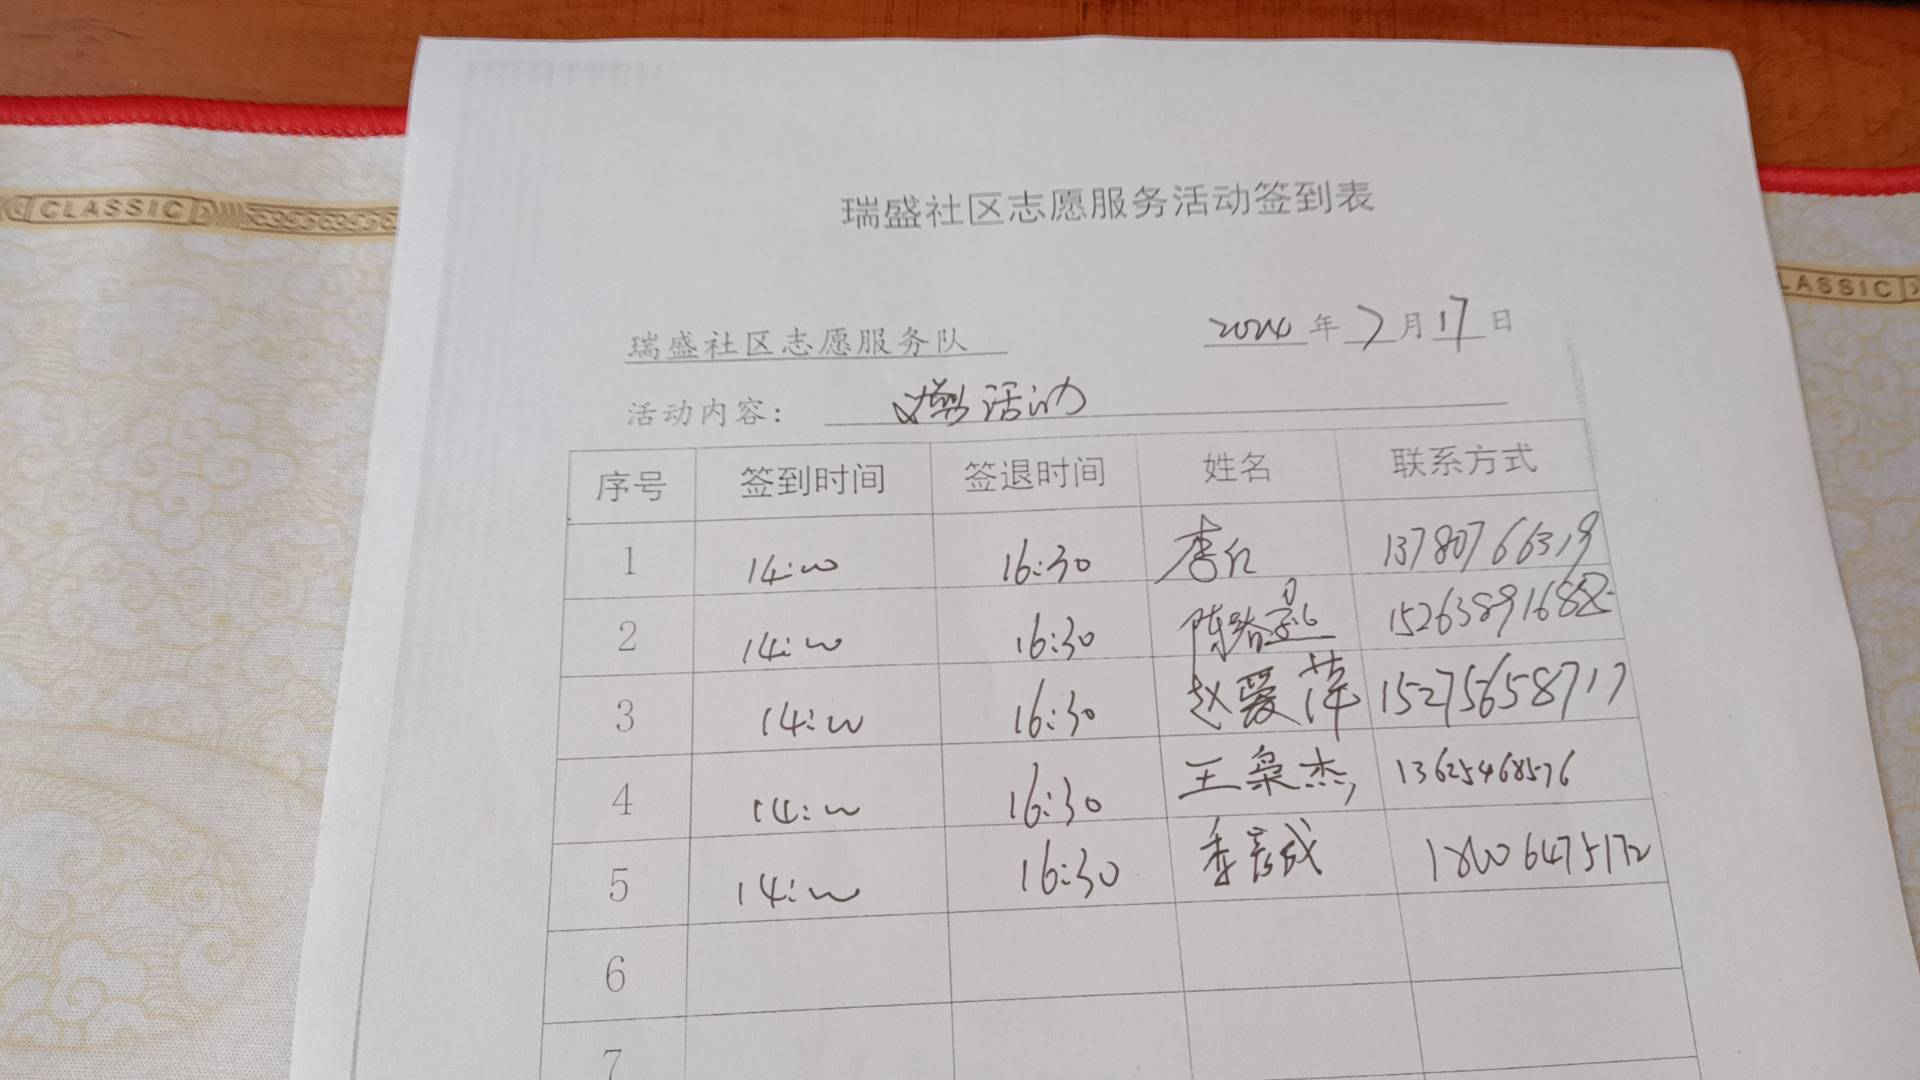 CLASSIC
瑞盛社区志愿服务活动签到表
瑞盛社区志愿服务队 2024年7月17日
活动内容： 义剪活动
序号 签到时间 签退时间 姓名 联系方式
1 14:00 16:30 李红 13780766319
2 14:00 16:30 陈 15263891682
3 14:00 16:30 赵爱萍 15275658717
4 14:00 16:30 王枭杰 13625468576
5 14:00 16:30 李长成 18606475172
6
7
LASSIC